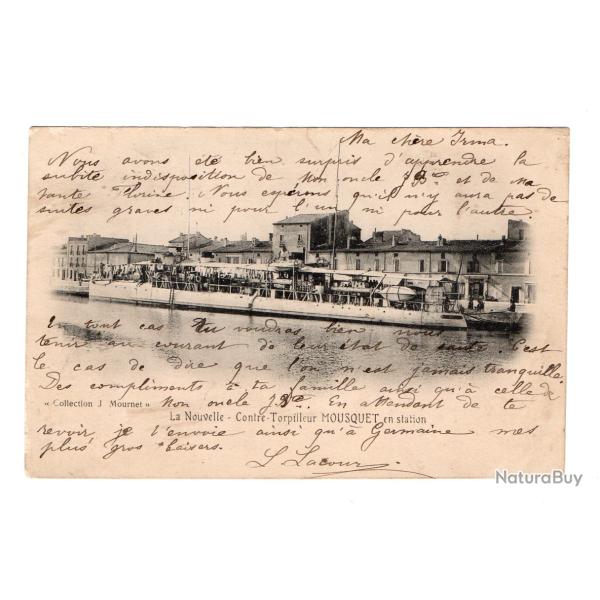 Ma chère Irma.
Nous avons été bien surpris d'apprendre la
subite indisposition de mon oncle J.Bte et de ma
tante Florine. Nous espérons qu'il n'y aura pas de
suites graves ni pour l'un ni pour l'autre.
En tout cas tu voudras bien nous
tenir au courant de leur état de santé. C'est
le cas de dire que l'on n'est jamais tranquille.
Des compliments à ta famille ainsi qu'à celle de
« Collection J Mournet » mon oncle J.Bte. En attendant de te
La Nouvelle - Contre-Torpilleur MOUSQUET en station
revoir je t'envoie ainsi qu'à Germaine mes
plus gros baisers.
L Lacour
NaturaBuy